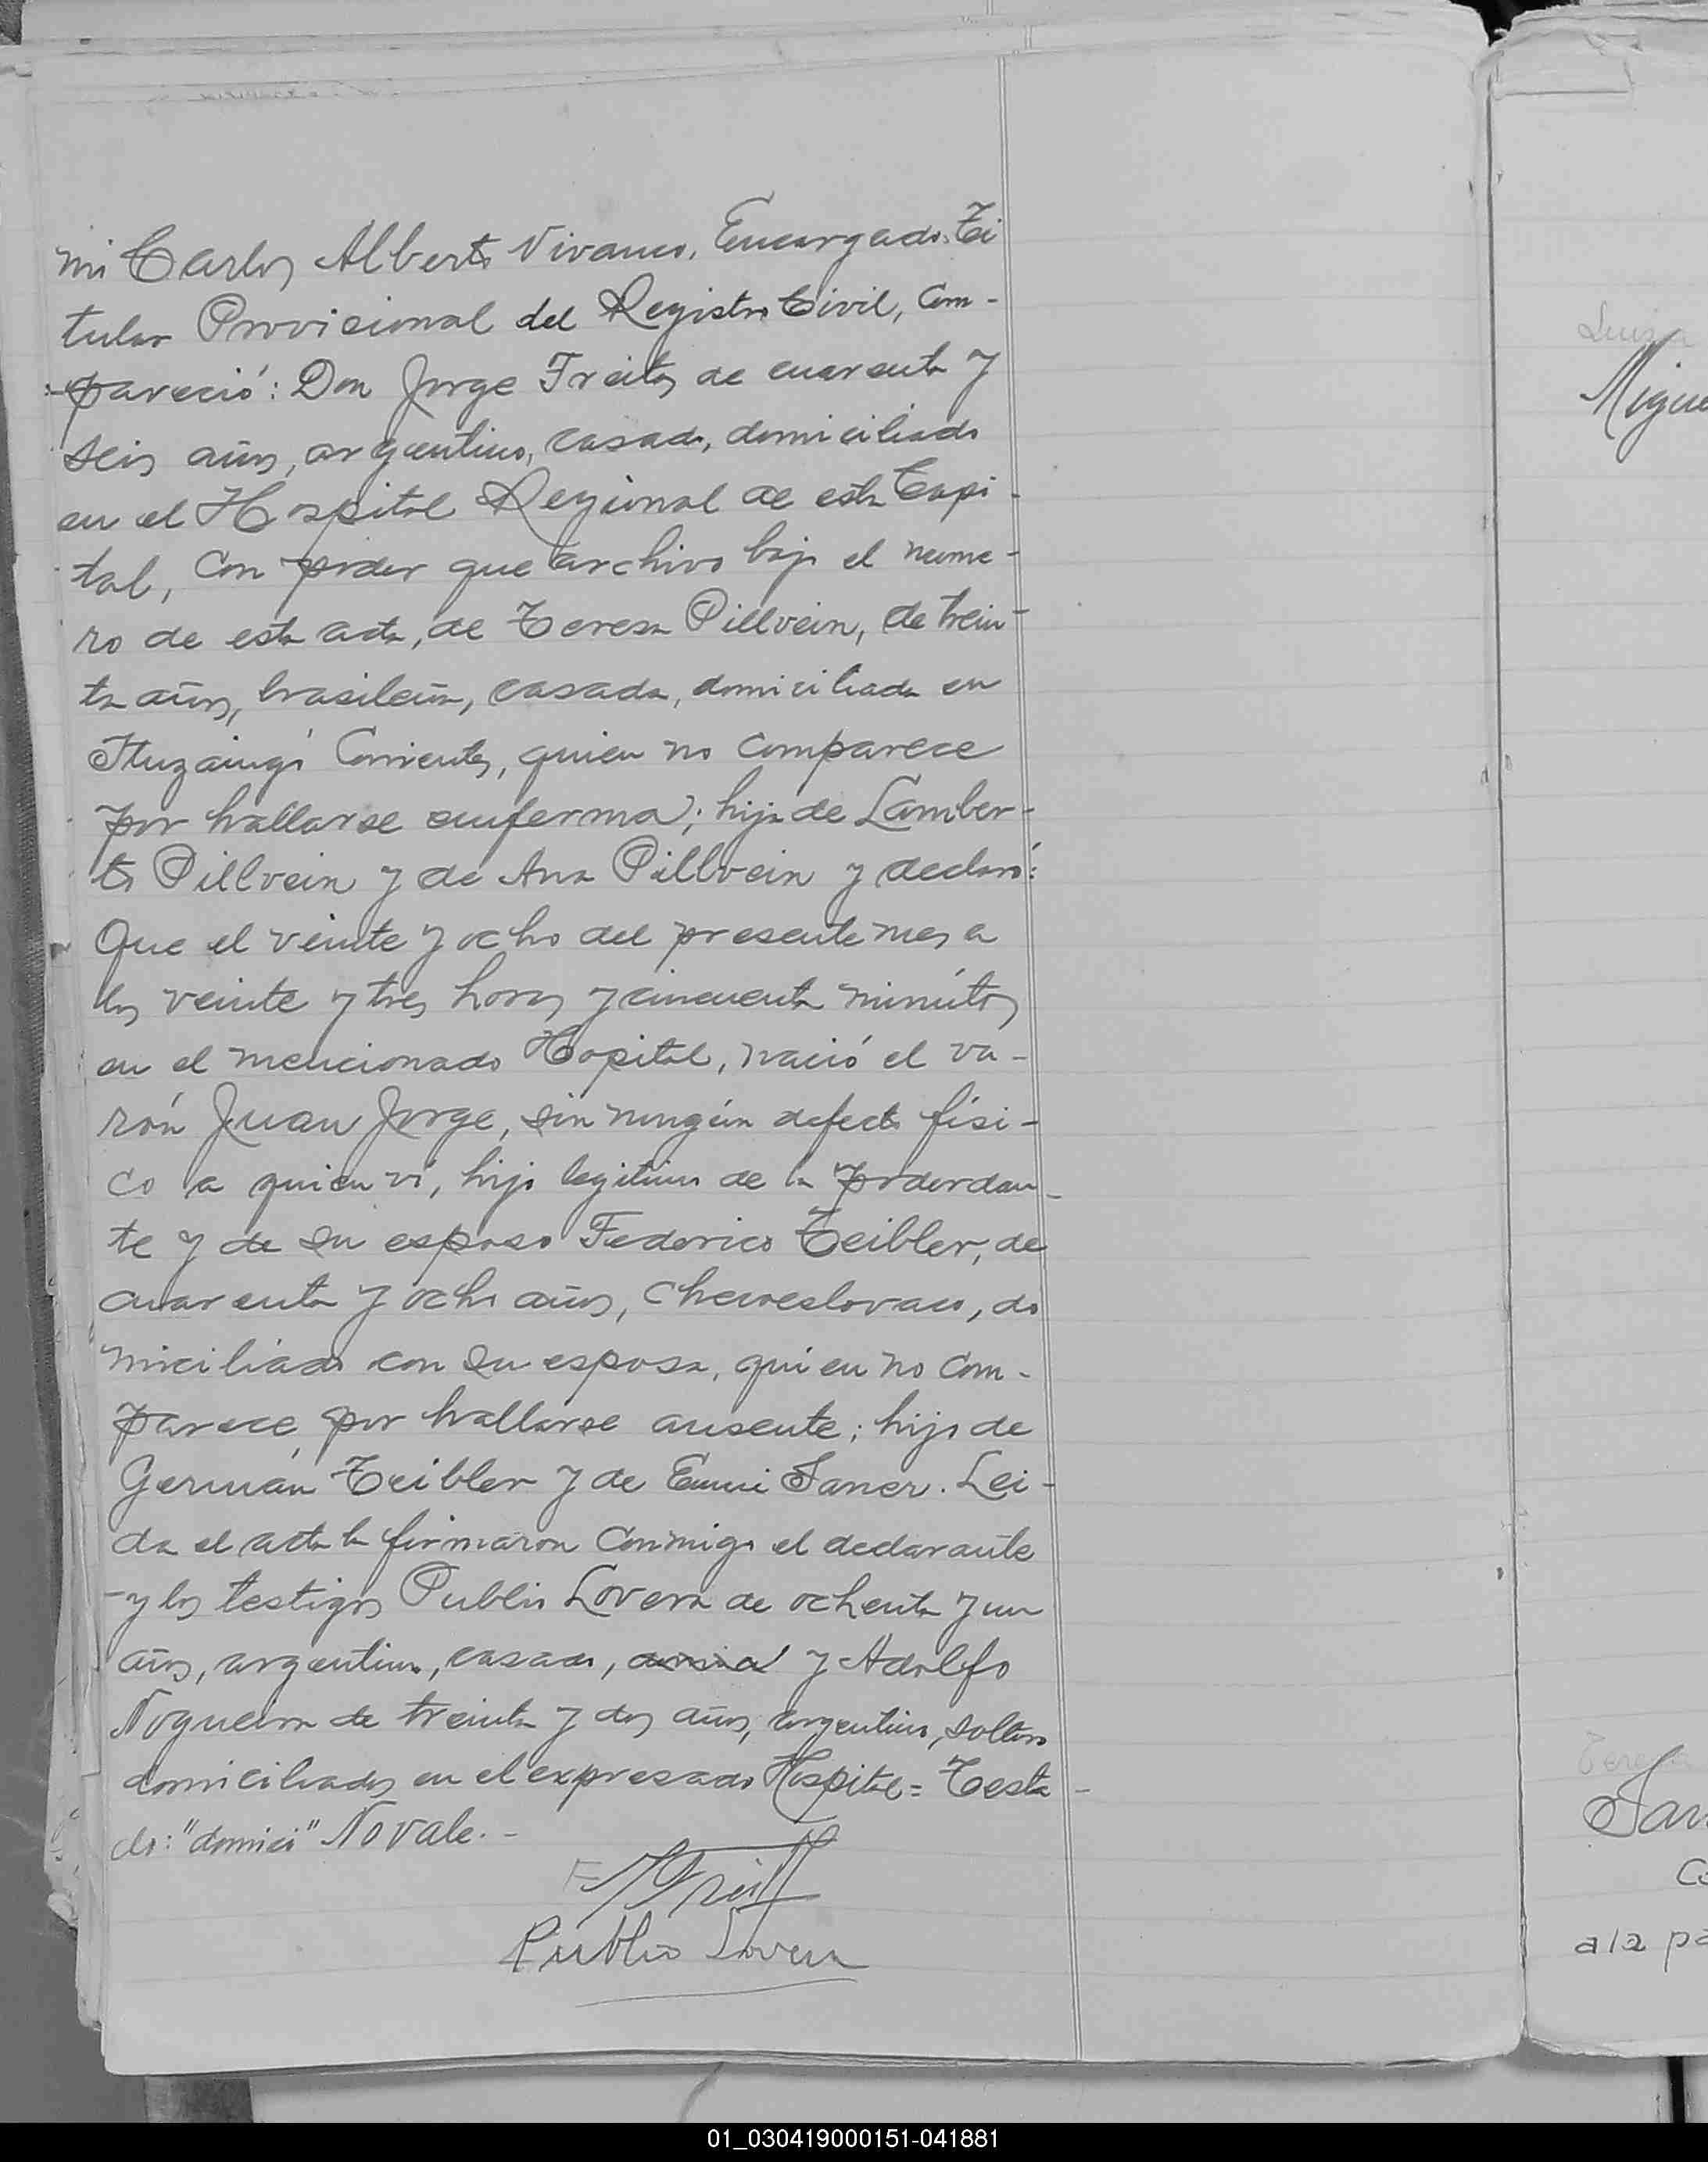 mi Carlos Alberto Vivanco, Encargado Ti
tular Provicional del Registro Civil, Com-
pareció: Don Jorge Freitas de cuarenta y
seis años, argentino, casado, domiciliado
en el Hospital Regional de esta Capi-
tal, con poder que archivo bajo el nume-
ro de esta acta, de Teresa Pillvein, de trein-
ta años, brasileña, casada, domiciliada en
Ituzaingó Corrientes, quien no comparece
por hallarse enferma; hija de Lamber-
to Pillvein y de Ana Pillvein y declaró:
Que el veinte y ocho del presente mes a
las veinte y tres horas y cincuenta minútos
en el mencionado Hospital, nació el va-
rón Juan Jorge, sin ningún defecto físi-
co a quien ví, hijo legitimo de la poderdan-
te y de su esposo Federico Teibler, de
cuarenta y ocho años, checoeslovaco, do
miciliado con su esposa, quien no com-
parece por hallarse ausente; hijo de
Germán Teibler y de Emmi Saner. Lei-
da el acta la firmaron conmigo el declarante
y los testigos Publio Lovera de ochenta y un
años, argentino, casado, y Adolfo
Nogueira de treinta y dos años, argentino, soltero
domiciliados en el expresado Hospital = Testa-
do: "domici" No vale.-
Publio Lovera
Luisa
Migue
Teresa
a la pa
01_030419000151-041881